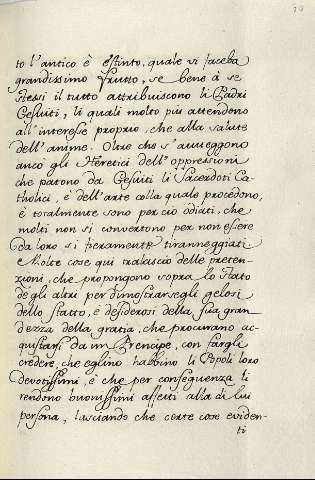 to l'antico è estinto, quale vi faceba
grandissimo frutto, se bene à se
stessi il tutto attribuiscono li Padri
Gesuiti, li quali molto più attendono
all'interesse proprio, che alla salute
dell'anime. Oltre che s'auueggono
anco gli Heretici dell'oppressioni
che patono da Gesuiti li Sacerdoti Ca-
tholici, e dell'arte colla quale procedono,
e totalmente sono per ciò odiati, che
molti non si conuertono per non essere
da loro si fieramente tiranneggiati.
e Molte cose qui tralascio delle preten-
zioni, che propongono sopra lo stato
degli altri per dimostrarsegli gelosi
dello stato, e desiderosi della sua gran-
dezza della gratia, che procurano ac-
quistarsi da un Prencipe, con fargli
credere, che eglino habbino li Popoli loro
deuotissimi, e che per conseguenza li
rendono buonissimi affetti alla di lui
persona, lasciando che certe cose eviden-
ti